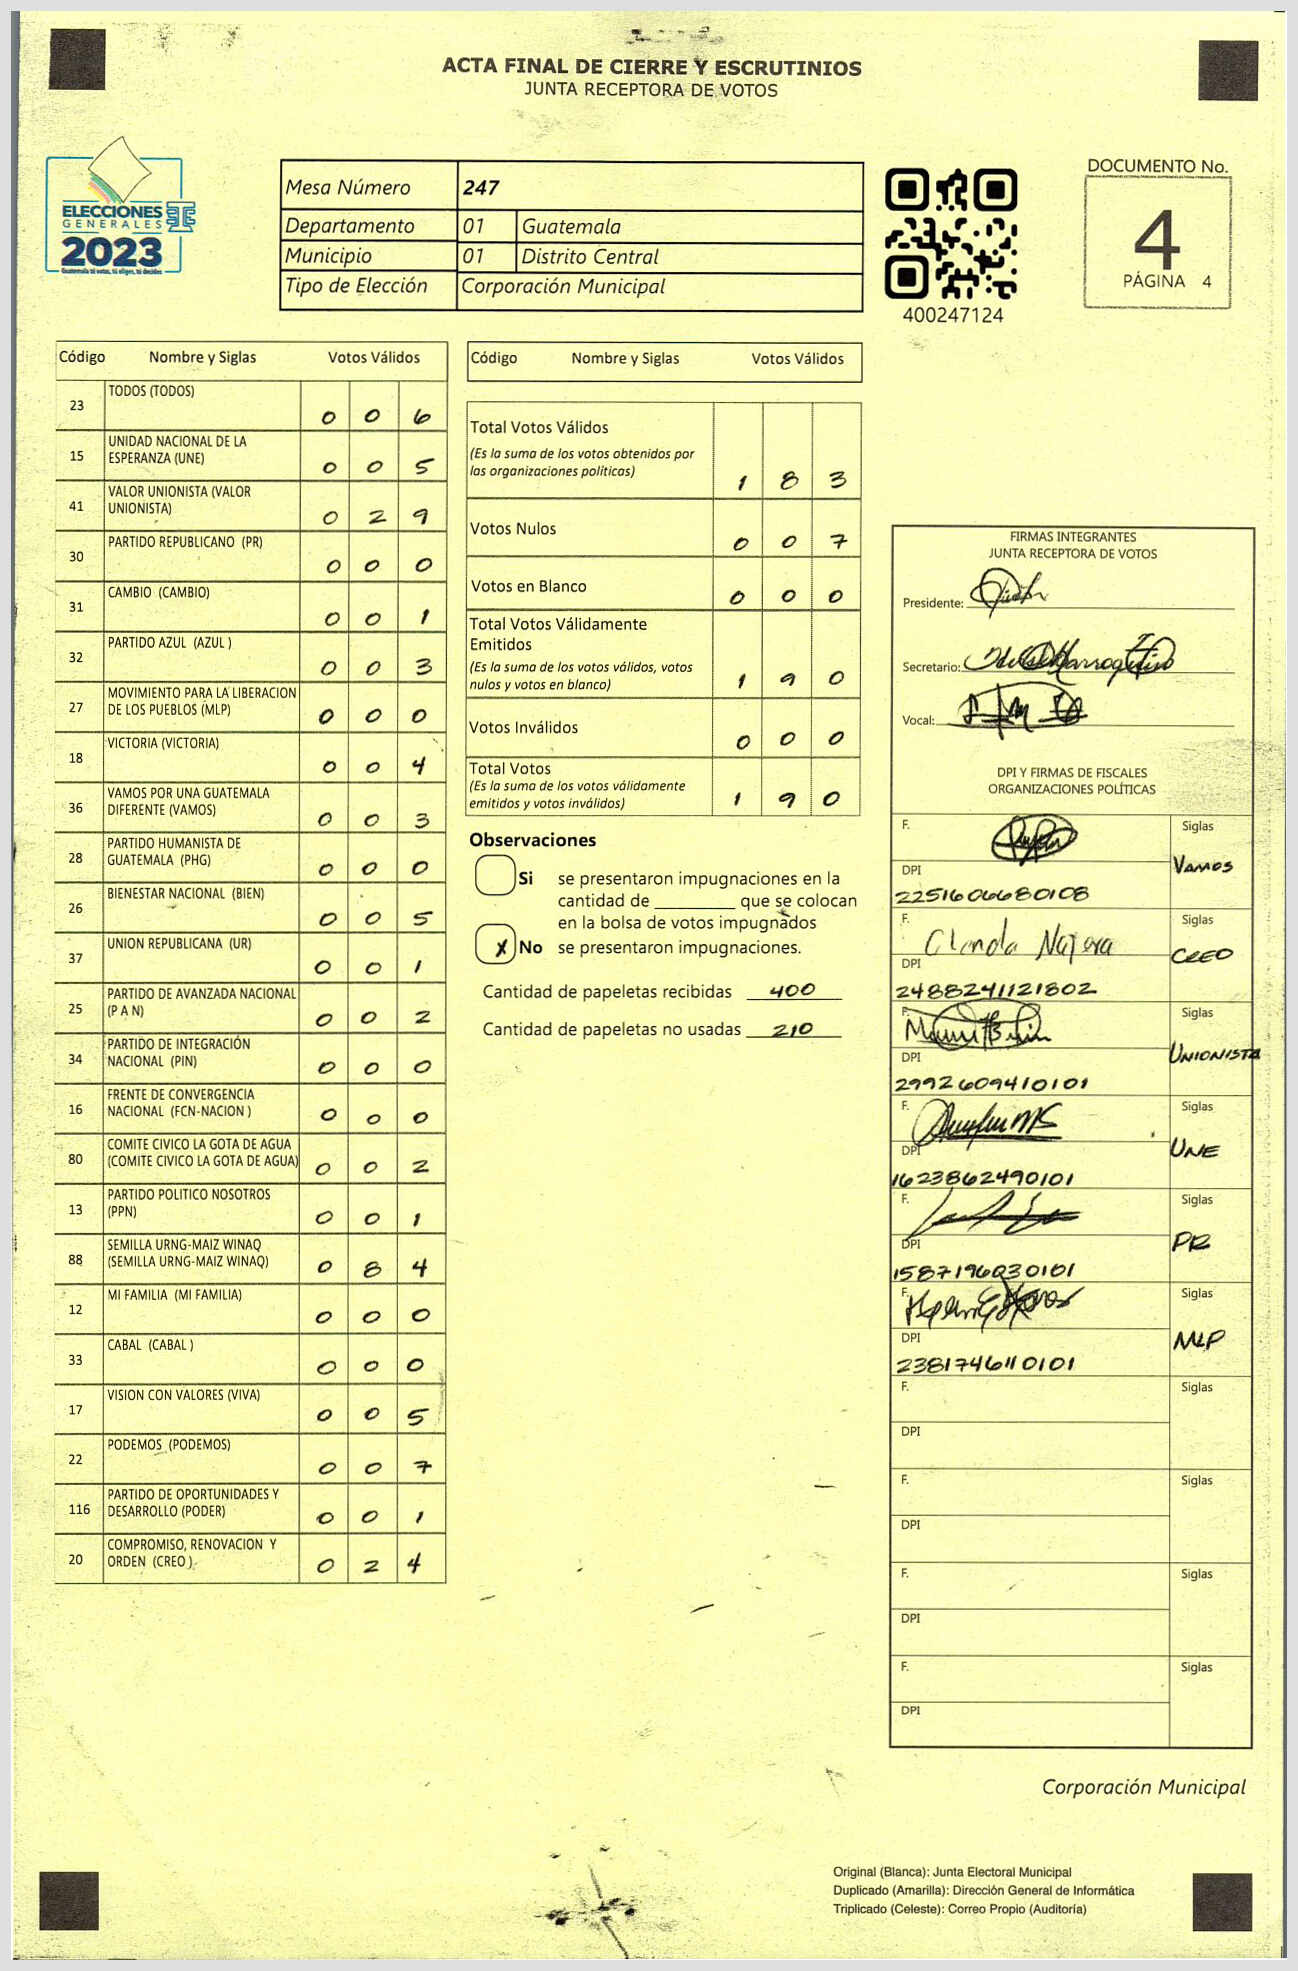 ACTA FINAL DE CIERRE Y ESCRUTINIOS
JUNTA RECEPTORA DE VOTOS
ELECCIONES
GENERALES
2023
Guatemala tú votas, tú eliges, tú decides
Mesa Número 247
Departamento 01 Guatemala
Municipio 01 Distrito Central
Tipo de Elección Corporación Municipal
400247124
DOCUMENTO No.
4
PÁGINA 4
Código Nombre y Siglas Votos Válidos
23 TODOS (TODOS) 0 0 6
15 UNIDAD NACIONAL DE LA
ESPERANZA (UNE) 0 0 5
41 VALOR UNIONISTA (VALOR
UNIONISTA) 0 2 9
30 PARTIDO REPUBLICANO (PR) 0 0 0
31 CAMBIO (CAMBIO) 0 0 1
32 PARTIDO AZUL (AZUL ) 0 0 3
27 MOVIMIENTO PARA LA LIBERACION
DE LOS PUEBLOS (MLP) 0 0 0
18 VICTORIA (VICTORIA) 0 0 4
36 VAMOS POR UNA GUATEMALA
DIFERENTE (VAMOS) 0 0 3
28 PARTIDO HUMANISTA DE
GUATEMALA (PHG) 0 0 0
26 BIENESTAR NACIONAL (BIEN) 0 0 5
37 UNION REPUBLICANA (UR) 0 0 1
25 PARTIDO DE AVANZADA NACIONAL
(P A N) 0 0 2
34 PARTIDO DE INTEGRACIÓN
NACIONAL (PIN) 0 0 0
16 FRENTE DE CONVERGENCIA
NACIONAL (FCN-NACION ) 0 0 0
80 COMITE CIVICO LA GOTA DE AGUA
(COMITE CIVICO LA GOTA DE AGUA) 0 0 2
13 PARTIDO POLITICO NOSOTROS
(PPN) 0 0 1
88 SEMILLA URNG-MAIZ WINAQ
(SEMILLA URNG-MAIZ WINAQ) 0 8 4
12 MI FAMILIA (MI FAMILIA) 0 0 0
33 CABAL (CABAL ) 0 0 0
17 VISION CON VALORES (VIVA) 0 0 5
22 PODEMOS (PODEMOS) 0 0 7
116 PARTIDO DE OPORTUNIDADES Y
DESARROLLO (PODER) 0 0 1
20 COMPROMISO, RENOVACION Y
ORDEN (CREO ) 0 2 4
Código Nombre y Siglas Votos Válidos
Total Votos Válidos
(Es la suma de los votos obtenidos por
las organizaciones políticas) 1 8 3
Votos Nulos 0 0 7
Votos en Blanco 0 0 0
Total Votos Válidamente
Emitidos
(Es la suma de los votos válidos, votos
nulos y votos en blanco) 1 9 0
Votos Inválidos 0 0 0
Total Votos
(Es la suma de los votos válidamente
emitidos y votos inválidos) 1 9 0
Observaciones
Si se presentaron impugnaciones en la
cantidad de ________ que se colocan
en la bolsa de votos impugnados
x No se presentaron impugnaciones.
Cantidad de papeletas recibidas 400
Cantidad de papeletas no usadas 210
FIRMAS INTEGRANTES
JUNTA RECEPTORA DE VOTOS
Presidente:
Secretario:
Vocal:
DPI Y FIRMAS DE FISCALES
ORGANIZACIONES POLÍTICAS
F. Siglas
DPI VAMOS
2251606680108
F. Siglas
DPI CREO
2488241121802
F. Siglas
DPI UNIONISTA
2992609410101
F. Siglas
DPI UNE
1623862490101
F. Siglas
DPI PR
1587196030101
F. Siglas
DPI MLP
2381746110101
F. Siglas
DPI
F. Siglas
DPI
F. Siglas
DPI
F. Siglas
DPI
Corporación Municipal
Original (Blanca): Junta Electoral Municipal
Duplicado (Amarilla): Dirección General de Informática
Triplicado (Celeste): Correo Propio (Auditoría)